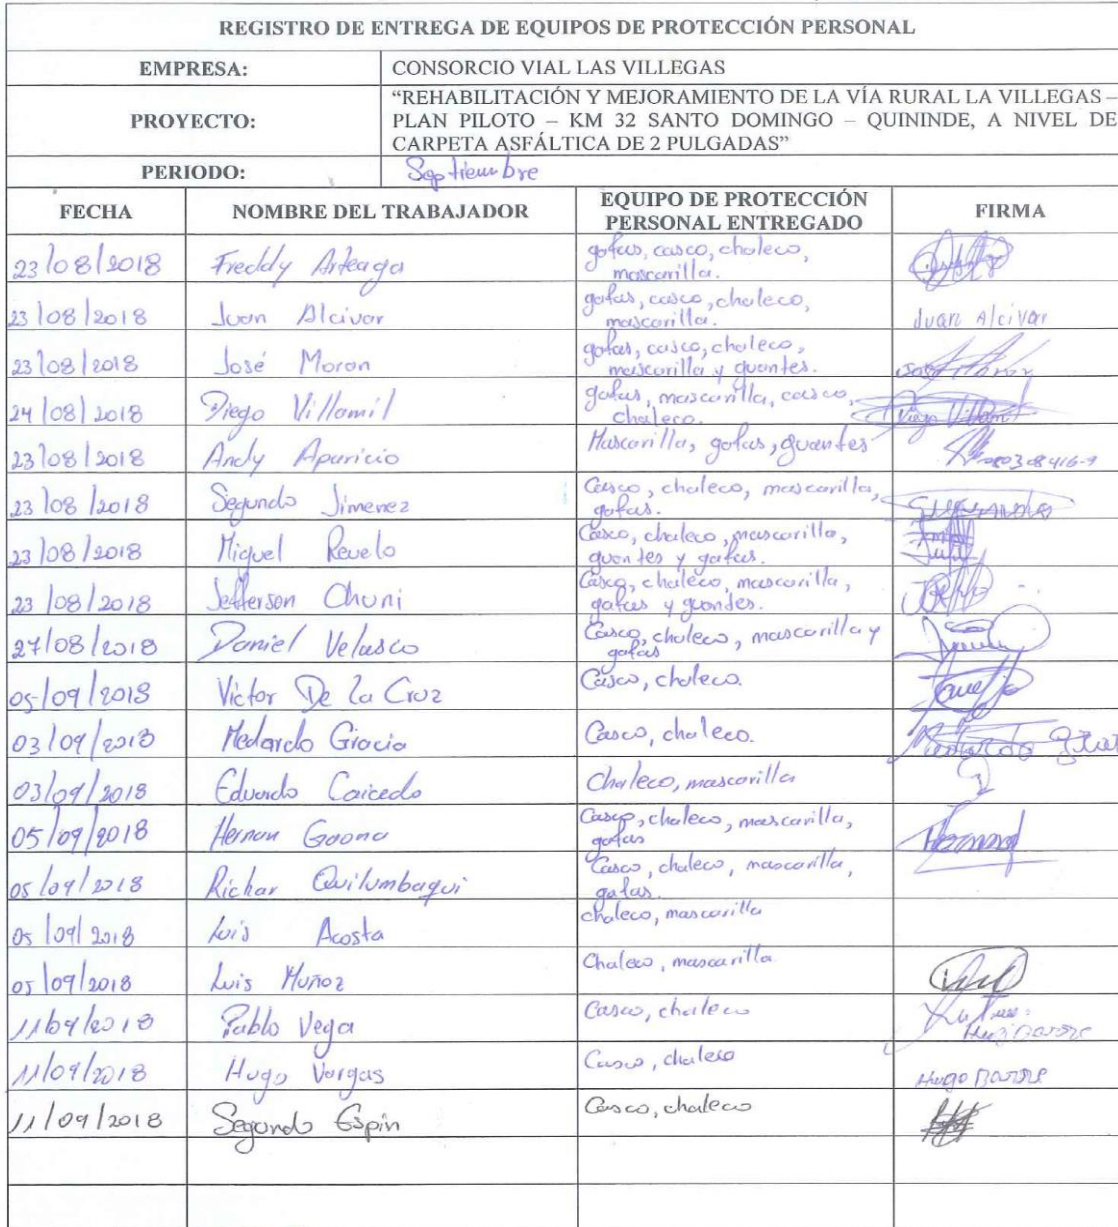 REGISTRO DE ENTREGA DE EQUIPOS DE PROTECCIÓN PERSONAL
EMPRESA: CONSORCIO VIAL LAS VILLEGAS
PROYECTO: “REHABILITACIÓN Y MEJORAMIENTO DE LA VÍA RURAL LA VILLEGAS –
PLAN PILOTO – KM 32 SANTO DOMINGO – QUININDE, A NIVEL DE
CARPETA ASFÁLTICA DE 2 PULGADAS”
PERIODO: Septiembre
FECHA NOMBRE DEL TRABAJADOR EQUIPO DE PROTECCIÓN
PERSONAL ENTREGADO FIRMA
23/08/2018 Freddy Arteaga gafas, casco, chaleco,
mascarilla.
23/08/2018 Juan Alcivar gafas, casco, chaleco,
mascarilla. Juan Alcivar
23/08/2018 José Moron gafas, casco, chaleco,
mascarilla y guantes.
24/08/2018 Diego Villamil gafas, mascarilla, casco,
chaleco. Diego Villamil
23/08/2018 Andy Aparicio Mascarilla, gafas, guantes
23/08/2018 Segundo Jimenez Casco, chaleco, mascarilla,
gafas.
23/08/2018 Miguel Revelo Casco, chaleco, mascarilla,
guantes y gafas.
23/08/2018 Jefferson Chuni Casco, chaleco, mascarilla,
gafas y guantes.
27/08/2018 Daniel Velasco Casco, chaleco, mascarilla y
gafas
05/09/2018 Victor De La Cruz Casco, chaleco.
03/09/2018 Medardo Gracia Casco, chaleco.
03/09/2018 Eduardo Caicedo Chaleco, mascarilla
05/09/2018 Hernan Gaona Casco, chaleco, mascarilla,
gafas
05/09/2018 Richar Quilumbaqui Casco, chaleco, mascarilla,
gafas.
05/09/2018 Luis Acosta chaleco, mascarilla
05/09/2018 Luis Muñoz Chaleco, mascarilla
11/09/2018 Pablo Vega Casco, chaleco
11/09/2018 Hugo Vargas Casco, chaleco
11/09/2018 Segundo Espin Casco, chaleco